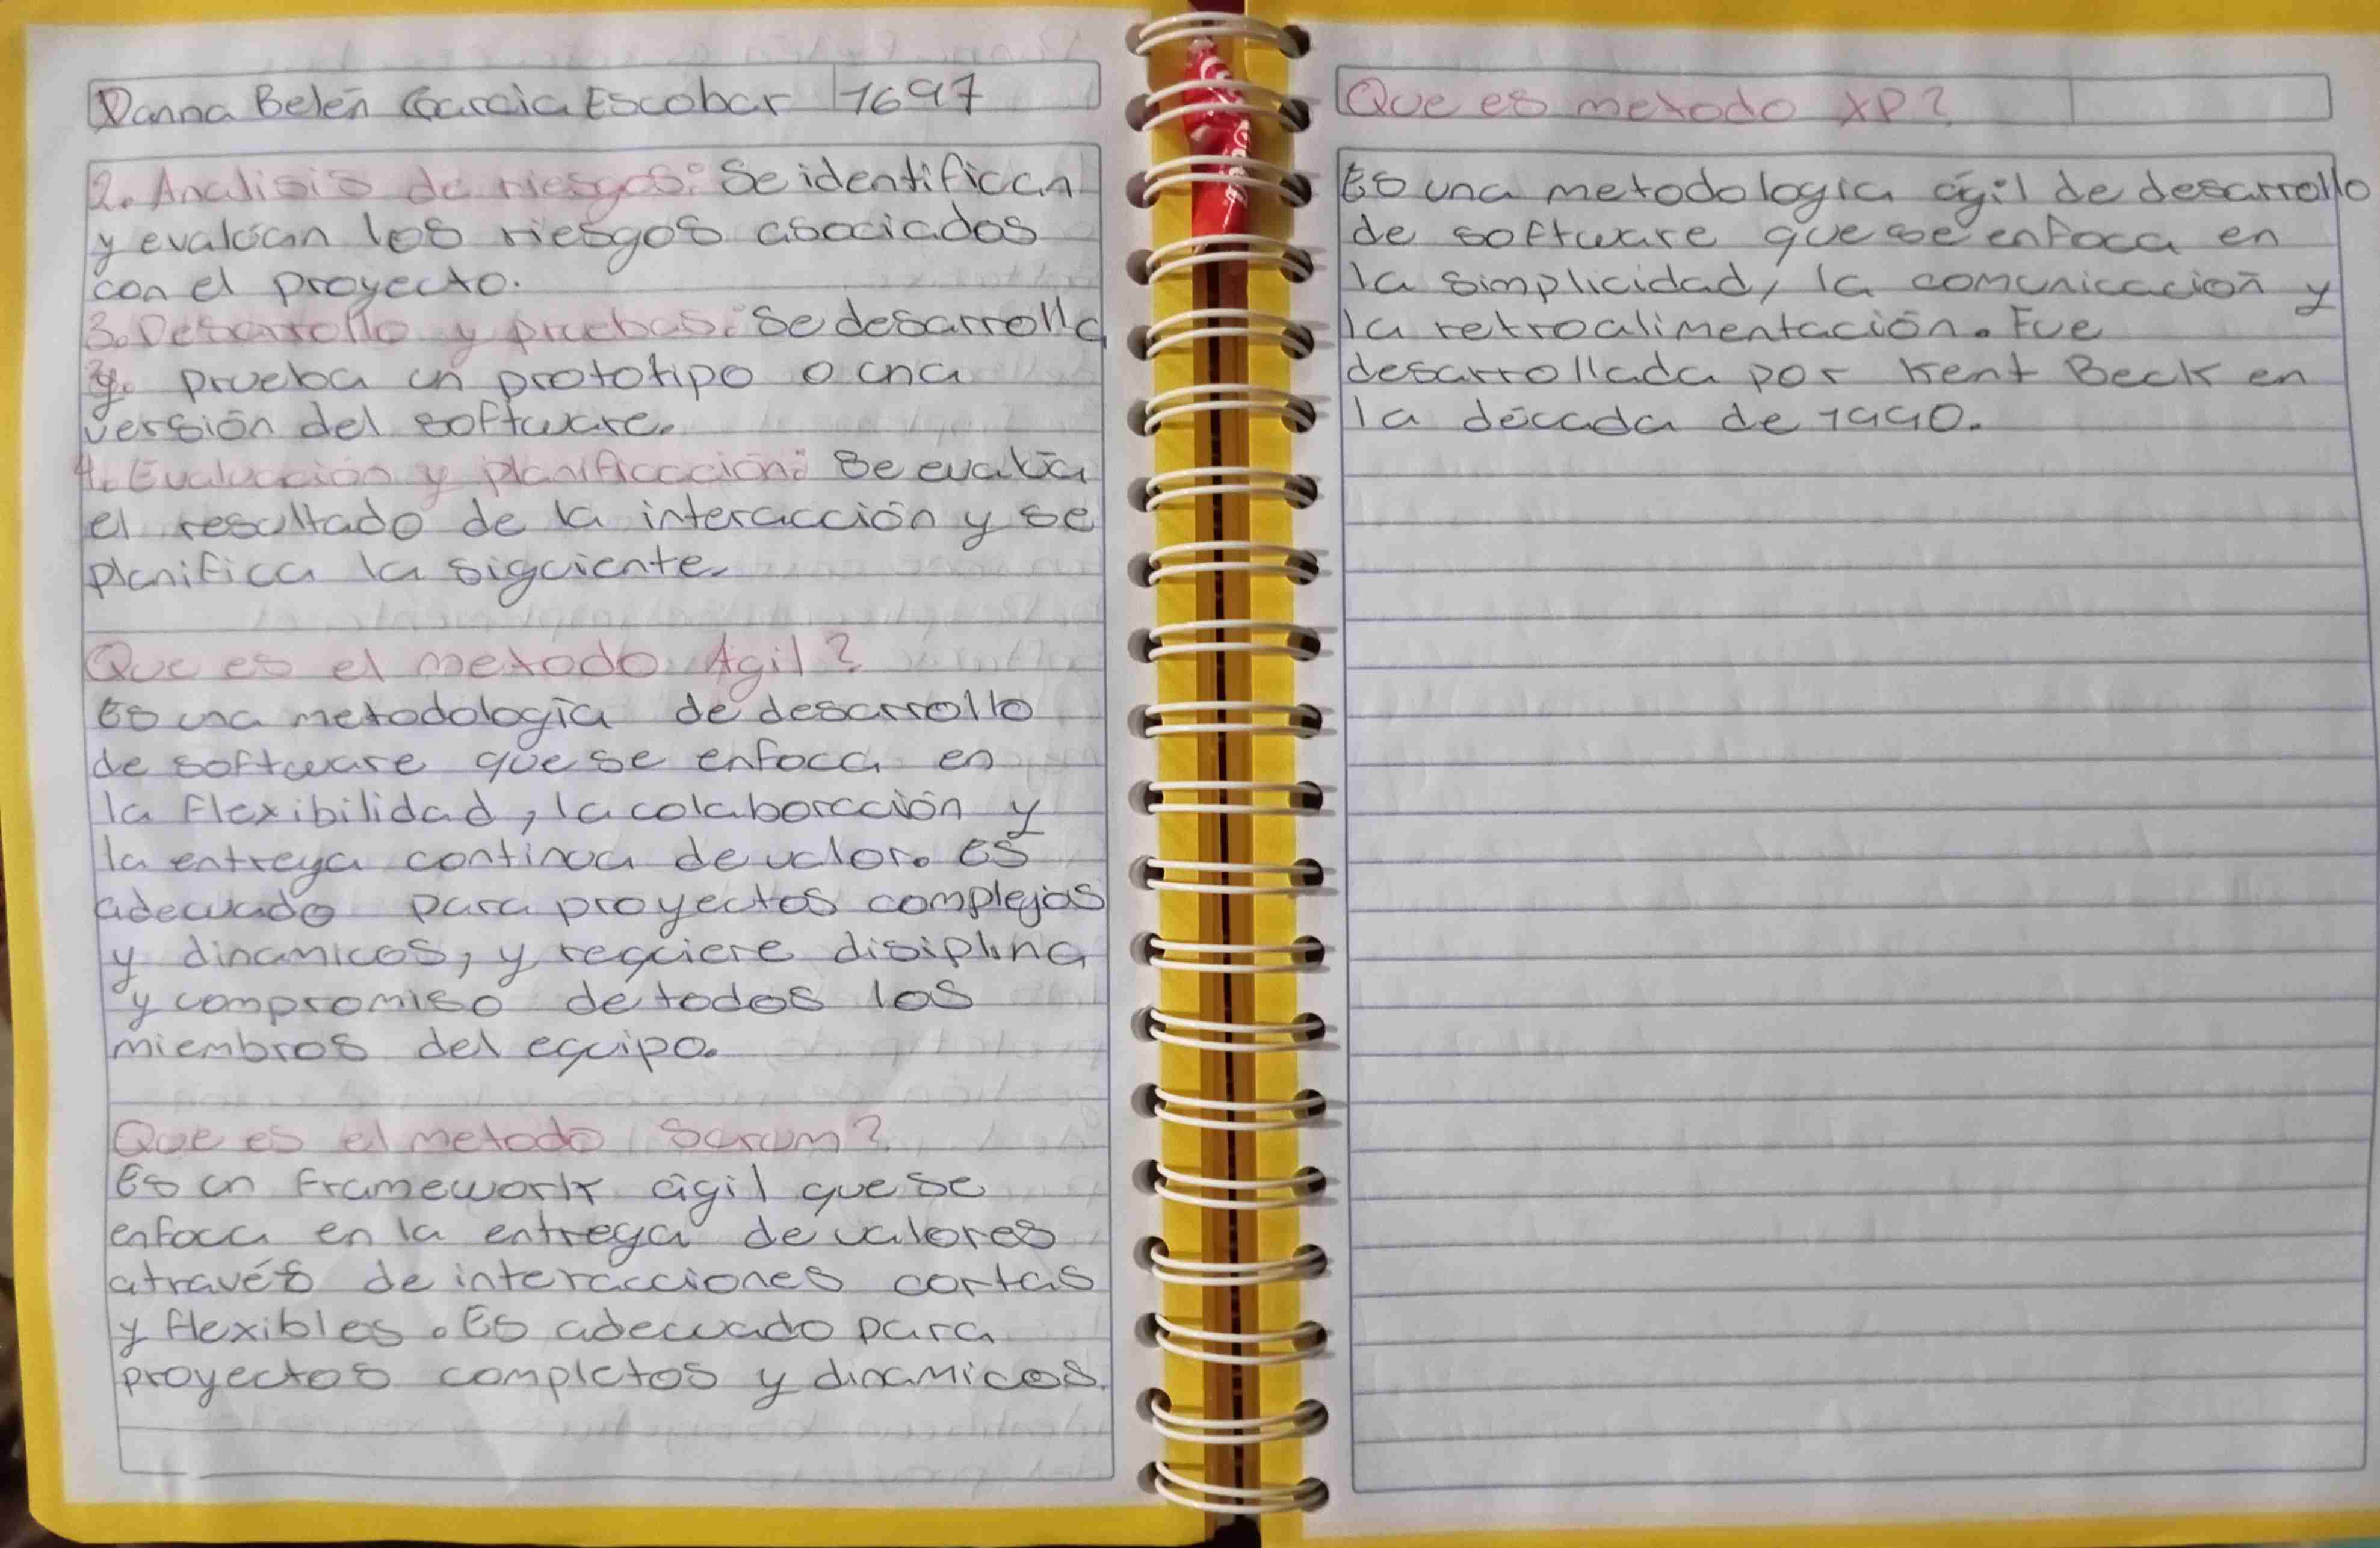 Danna Belén Garcia Escobar 1697
2. Analisis de riesgos: Se identifican
y evalúan los riesgos asociados
con el proyecto.
3. Desarrollo y pruebas: Se desarrolla
y prueba un prototipo o una
versión del software.
4. Evaluación y planificacación: Se evalúa
el resultado de la interacción y se
planifica la siguiente.
Que es el metodo Agil?
Es una metodología de desarrollo
de software que se enfoca en
la flexibilidad, la colaboracción y
la entrega continua de valor. Es
adecuado para proyectos complejos
y dinamicos, y requiere disiplina
y compromiso de todos los
miembros del equipo.
Que es el metodo Scrum?
Es un framework ágil que se
enfoca en la entrega de valores
através de interacciones cortas
y flexibles. Es adecuado para
proyectos completos y dinamicos.
Que es metodo XP?
Es una metodologia ágil de desarrollo
de software que se enfoca en
la simplicidad, la comunicación y
la retroalimentación. Fue
desarrollada por Kent Beck en
la década de 1990.